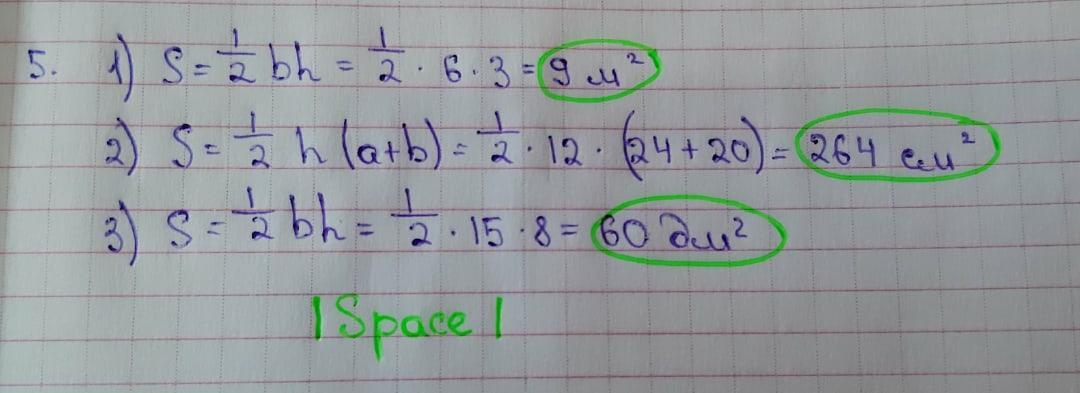 5. 1) S = 1/2 bh = 1/2 · 6 · 3 = 9 м²
2) S = 1/2 h (a+b) = 1/2 · 12 · (24 + 20) = 264 см²
3) S = 1/2 bh = 1/2 · 15 · 8 = 60 дм²
| Space |